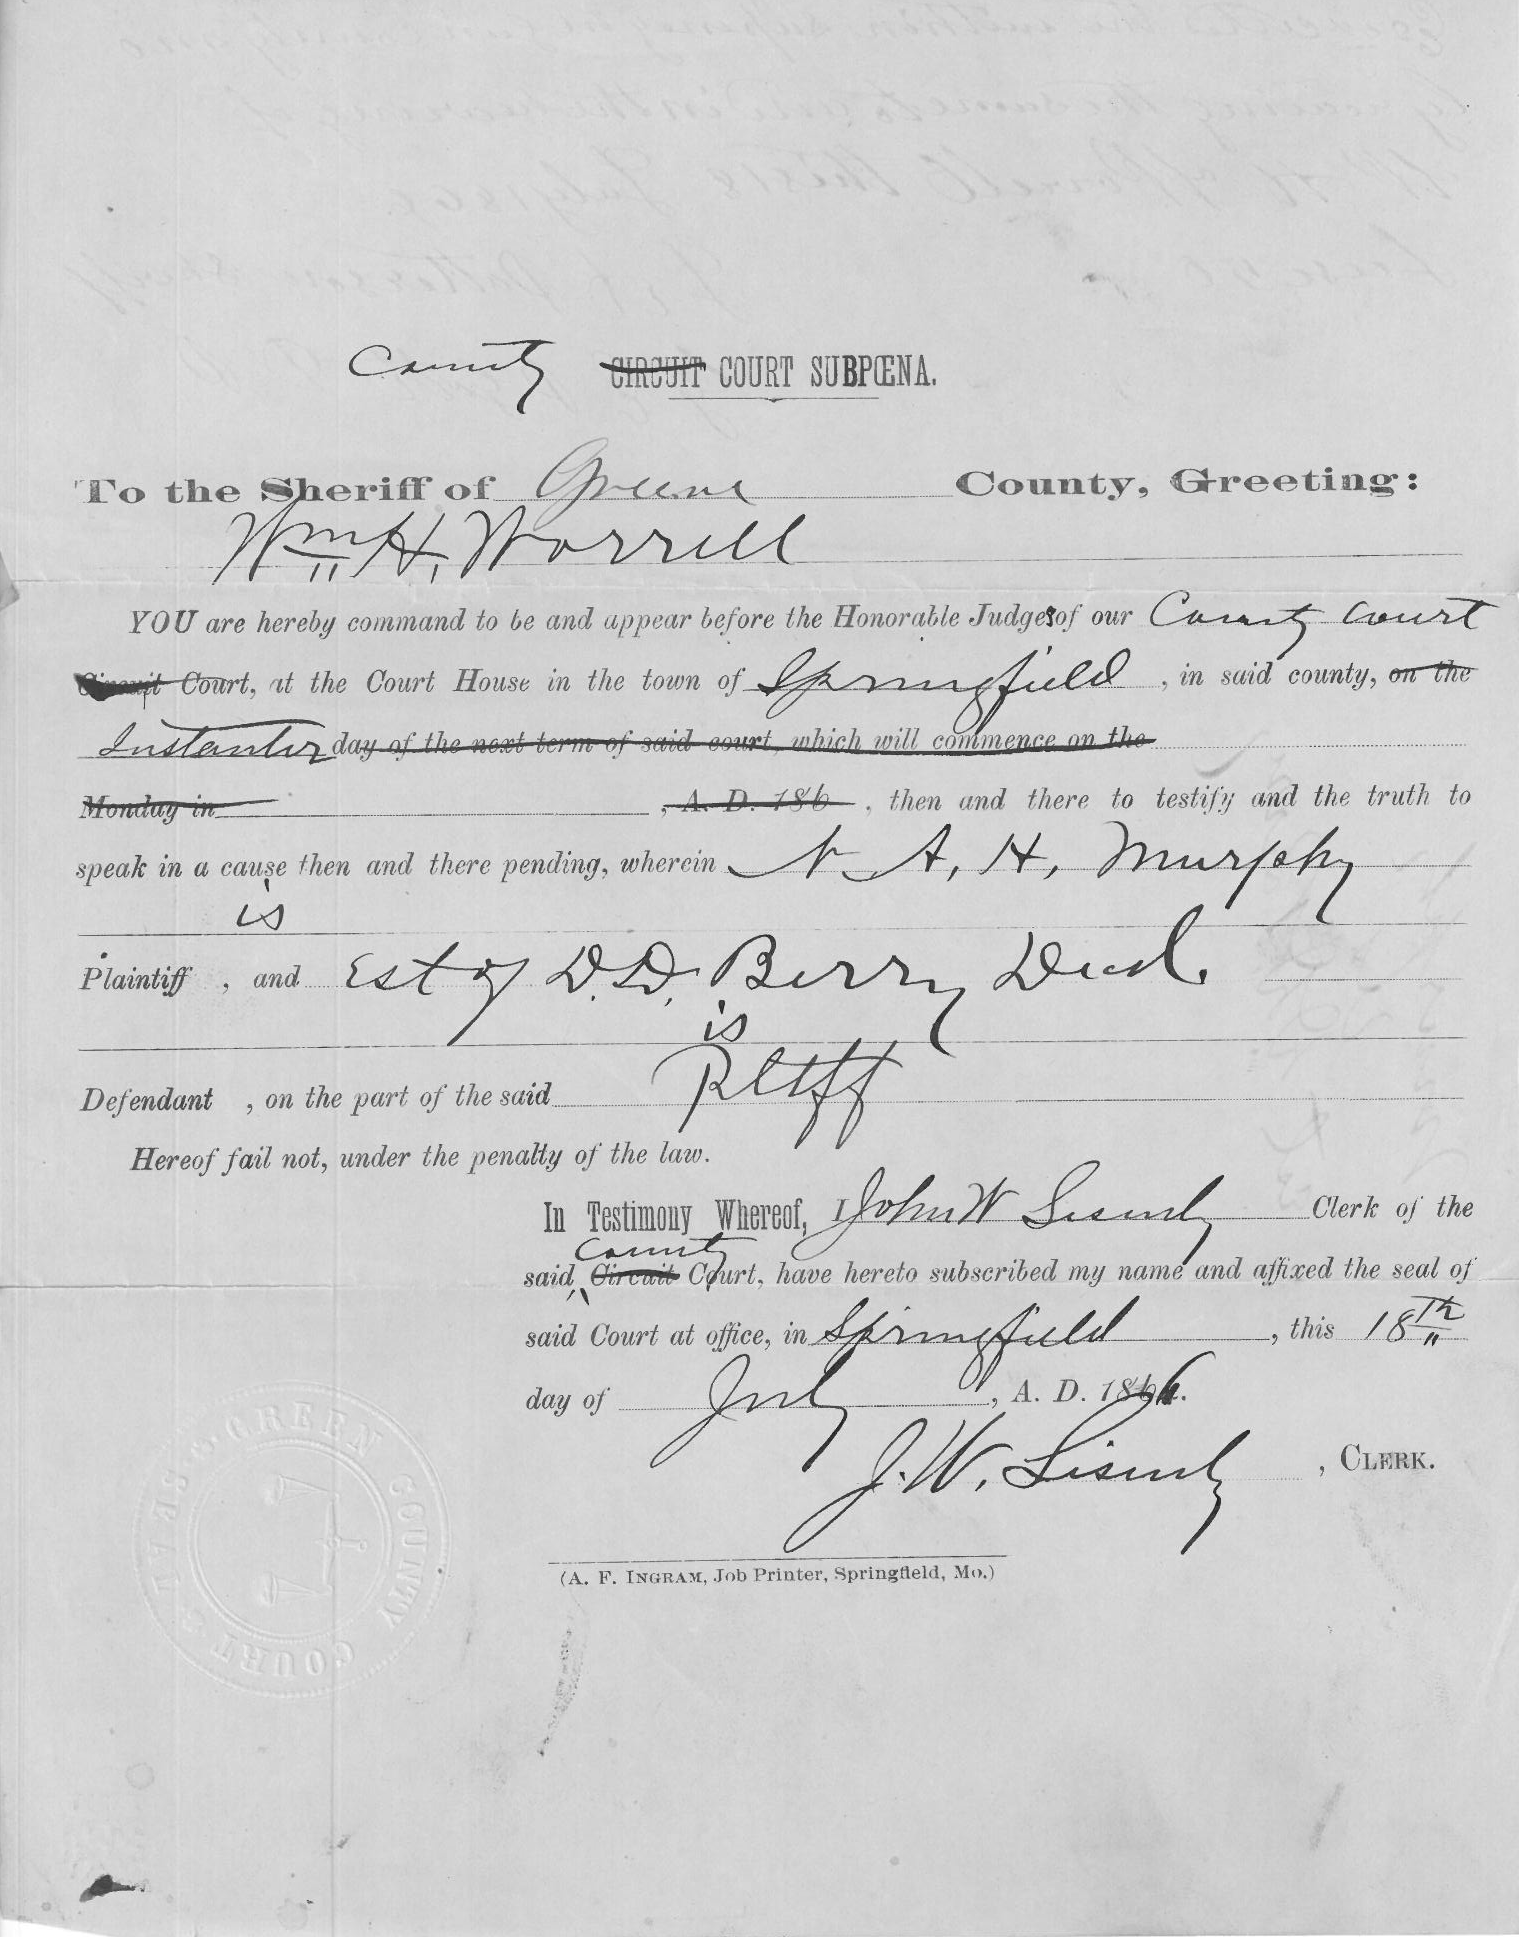 County ~~CIRCUIT~~ COURT SUBPŒNA.
To the Sheriff of Greene County, Greeting:
Wm H. Worrell
YOU are hereby command to be and appear before the Honorable Judges of our County Court
~~Circuit~~ Court, at the Court House in the town of Springfield, in said county, ~~on the~~
Instanter ~~day of the next term of said court, which will commence on the~~
~~Monday in~~ ~~, A. D. 186~~ , then and there to testify and the truth to
speak in a cause then and there pending, wherein N A, H, Murphy
is
Plaintiff , and Est of D. D. Berry Decd.
is
Defendant , on the part of the said Pltff
Hereof fail not, under the penalty of the law.
In Testimony Whereof, I John W Lisenby Clerk of the
county
said ~~Circuit~~ Court, have hereto subscribed my name and affixed the seal of
said Court at office, in Springfield , this 18th
day of July , A. D. 186
J. W. Lisenby , CLERK.
GREEN COUNTY COURT SEAL
(A. F. INGRAM, Job Printer, Springfield, Mo.)